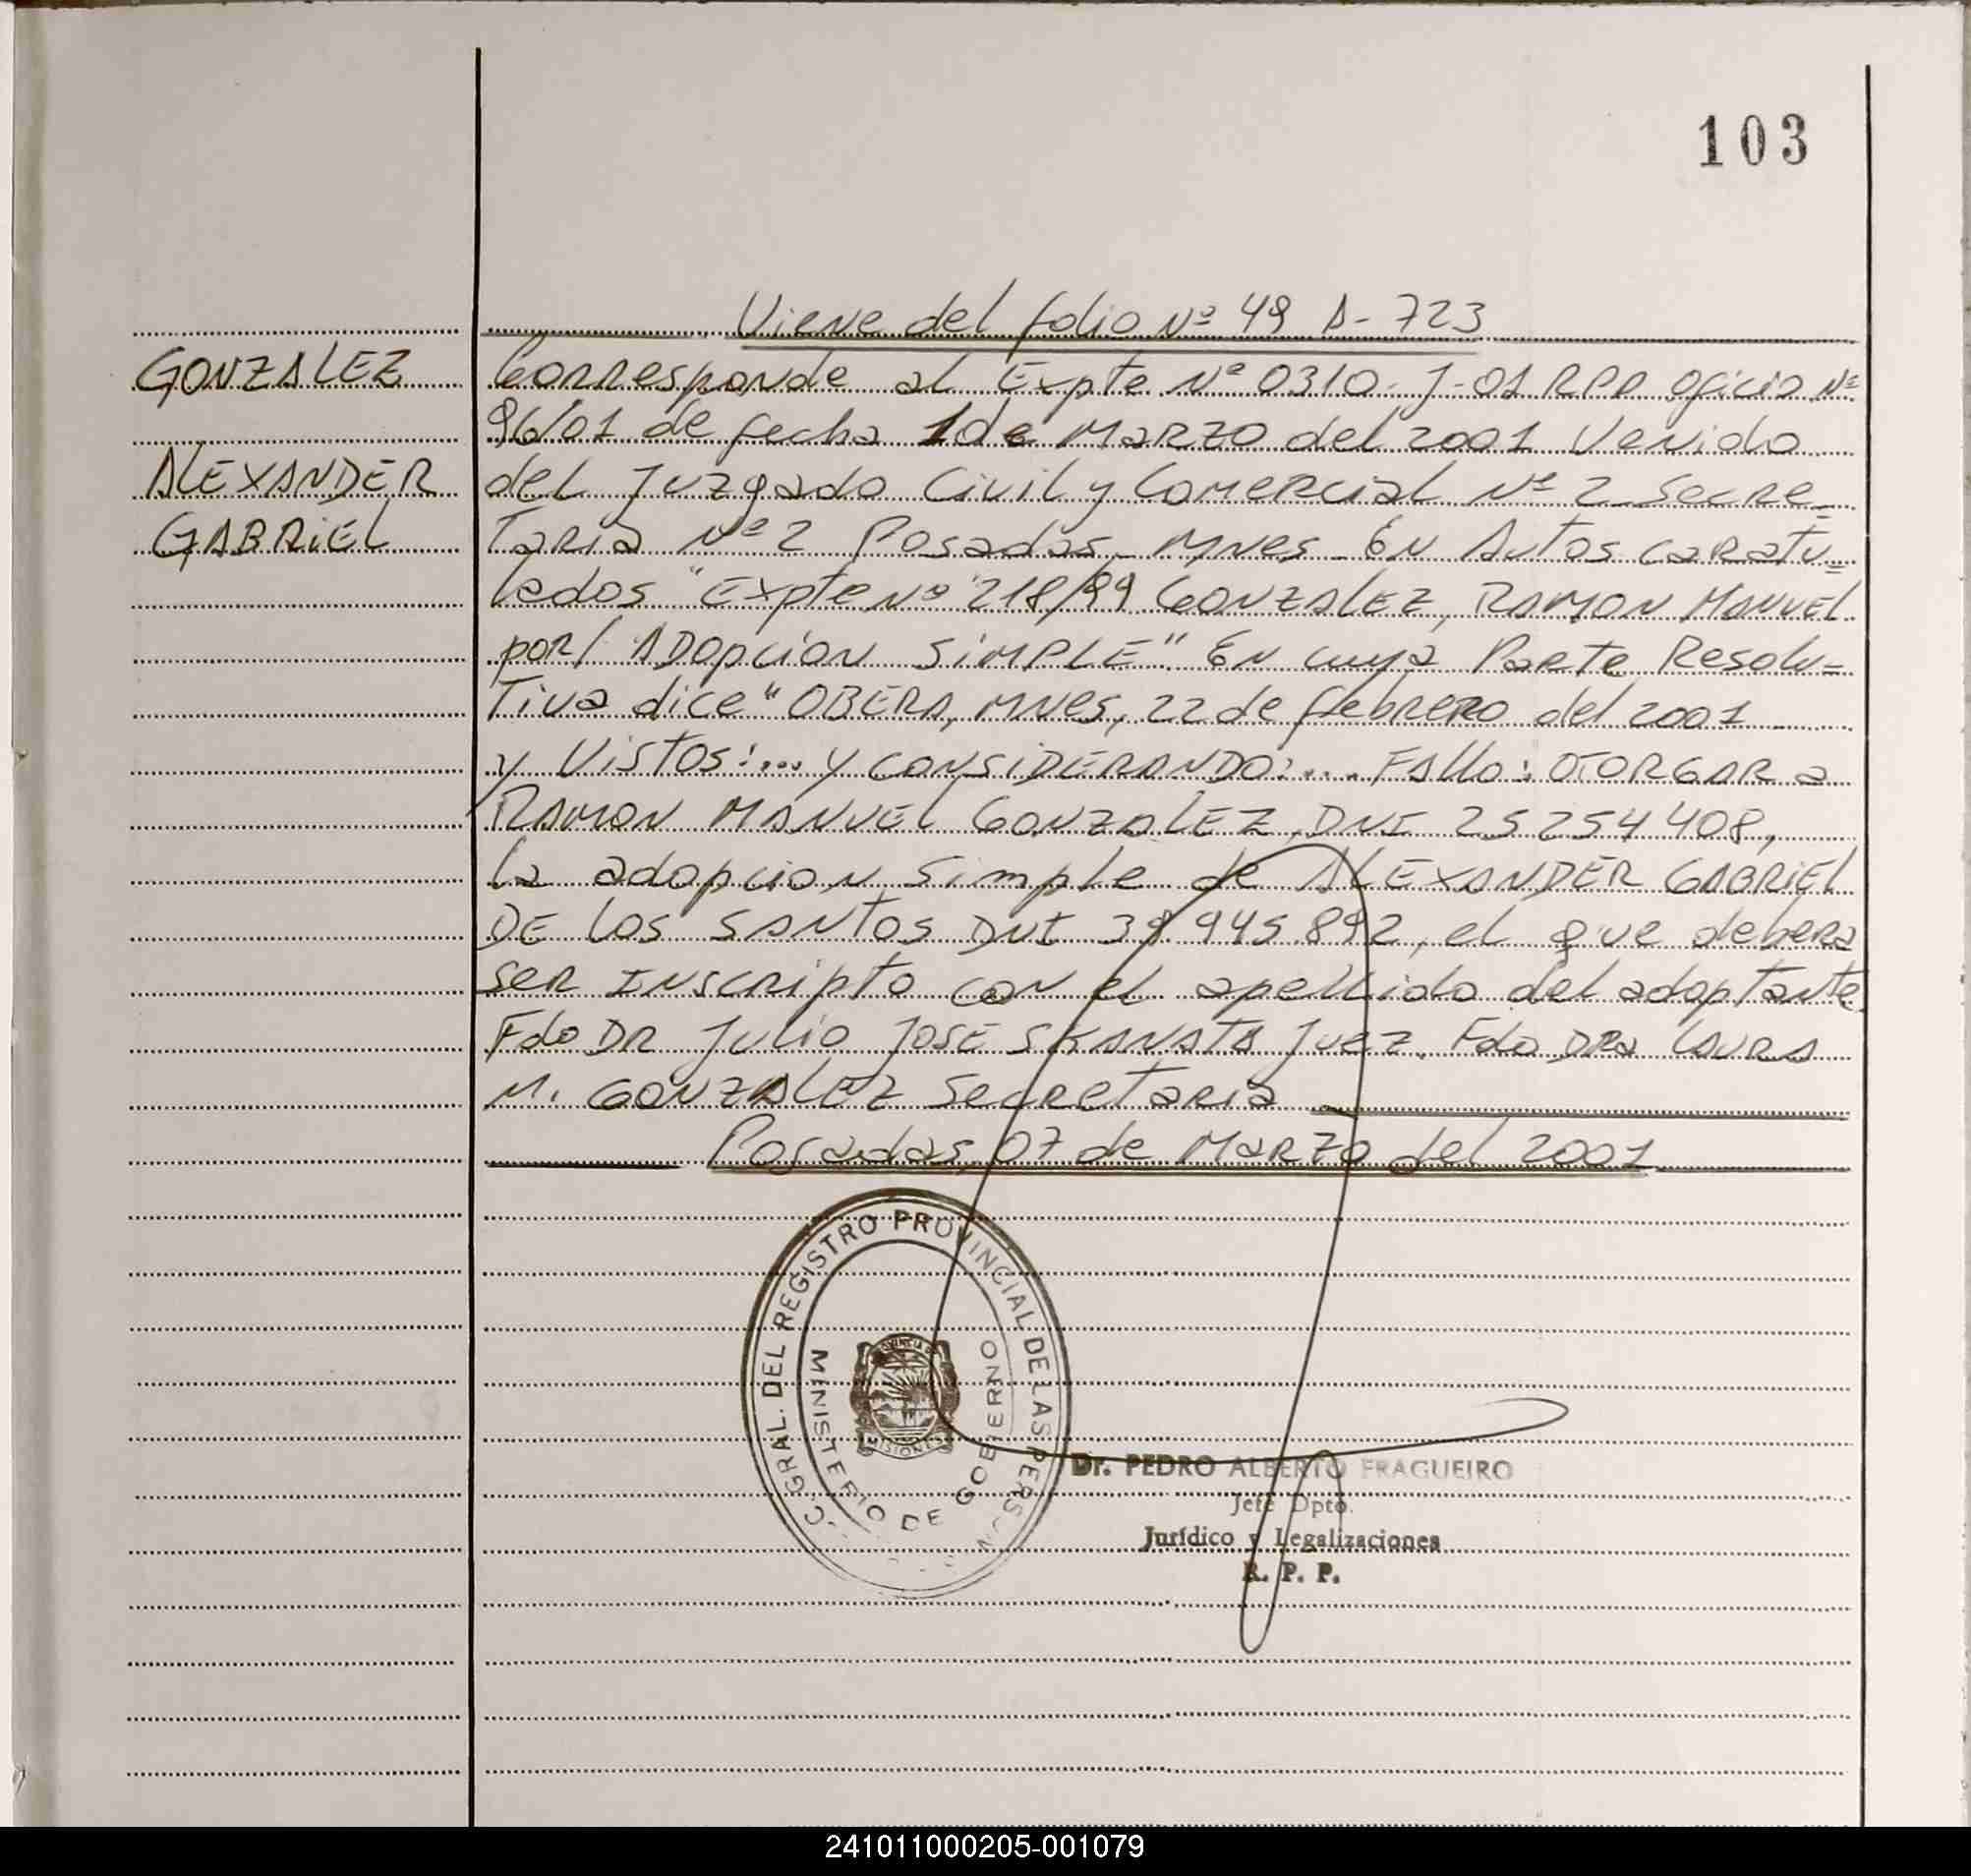 103
Viene del folio Nº 49 A- 723
GONZALEZ
Corresponde al Expte Nº 0310-J-01 RPP oficio Nº
96/01 de fecha 1 de MARZO del 2001 Venido
ALEXANDER
del Juzgado Civil y Comercial Nº 2 Secre=
GABRiEL
Taria Nº 2 Posadas- Mnes- En Autos caratu=
lados "Expte Nº 218/99 GONZALEZ, RAMON MANUEL
por/ ADOpcion SiMPLE" En cuya Parte Resolu=
Tiva dice "OBERA, MNes, 22 de febrero del 2001
y VisTos:... y CONSiDERANDO:... FAllo: OTORGAR a
RAMON MANUEL GONZALEZ, DNI 25254408,
la adopcion simple de ALEXANDER GABRiEL
DE LOS SANTOS DNI 39.945.892, el que debera
ser INscripto con el apellido del adoptante
Fdo DR Julio JOSE SKANATA Juez. Fdo DRa LAURA
M. GONZALEZ Secretaria
Posadas, 07 de Marzo del 2001
C. GRAL. DEL REGISTRO PROVINCIAL DE LAS PERSONAS
MINISTERIO DE GOBIERNO
PROVINCIA DE
MISIONES
Dr. PEDRO ALBERTO FRAGUEIRO
Jefe Dpto.
Jurídico y Legalizaciones
R. P. P.
241011000205-001079